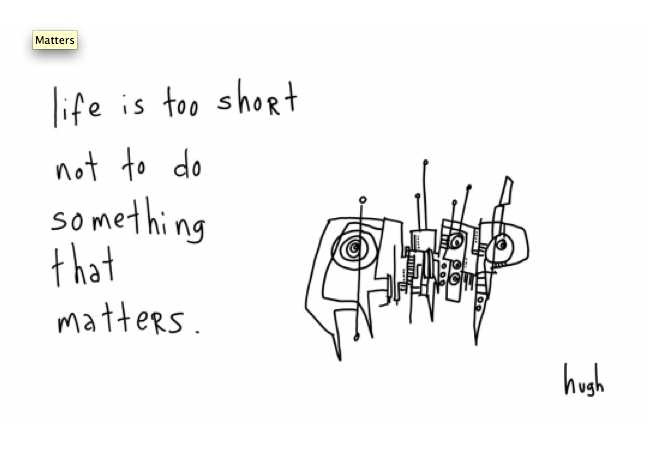 Matters
life is too short
not to do
something
that
matters.
hugh